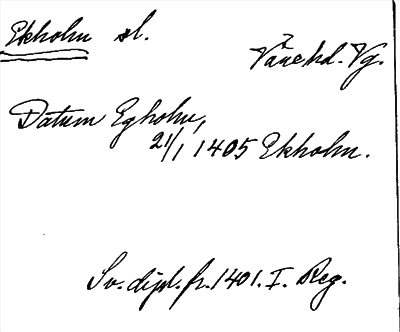 Ekholm sl.
Väne hd. Vg.
Datum Egholm,
21/1 1405 Ekholm.
Sv. dipl. fr. 1401. I. Reg.